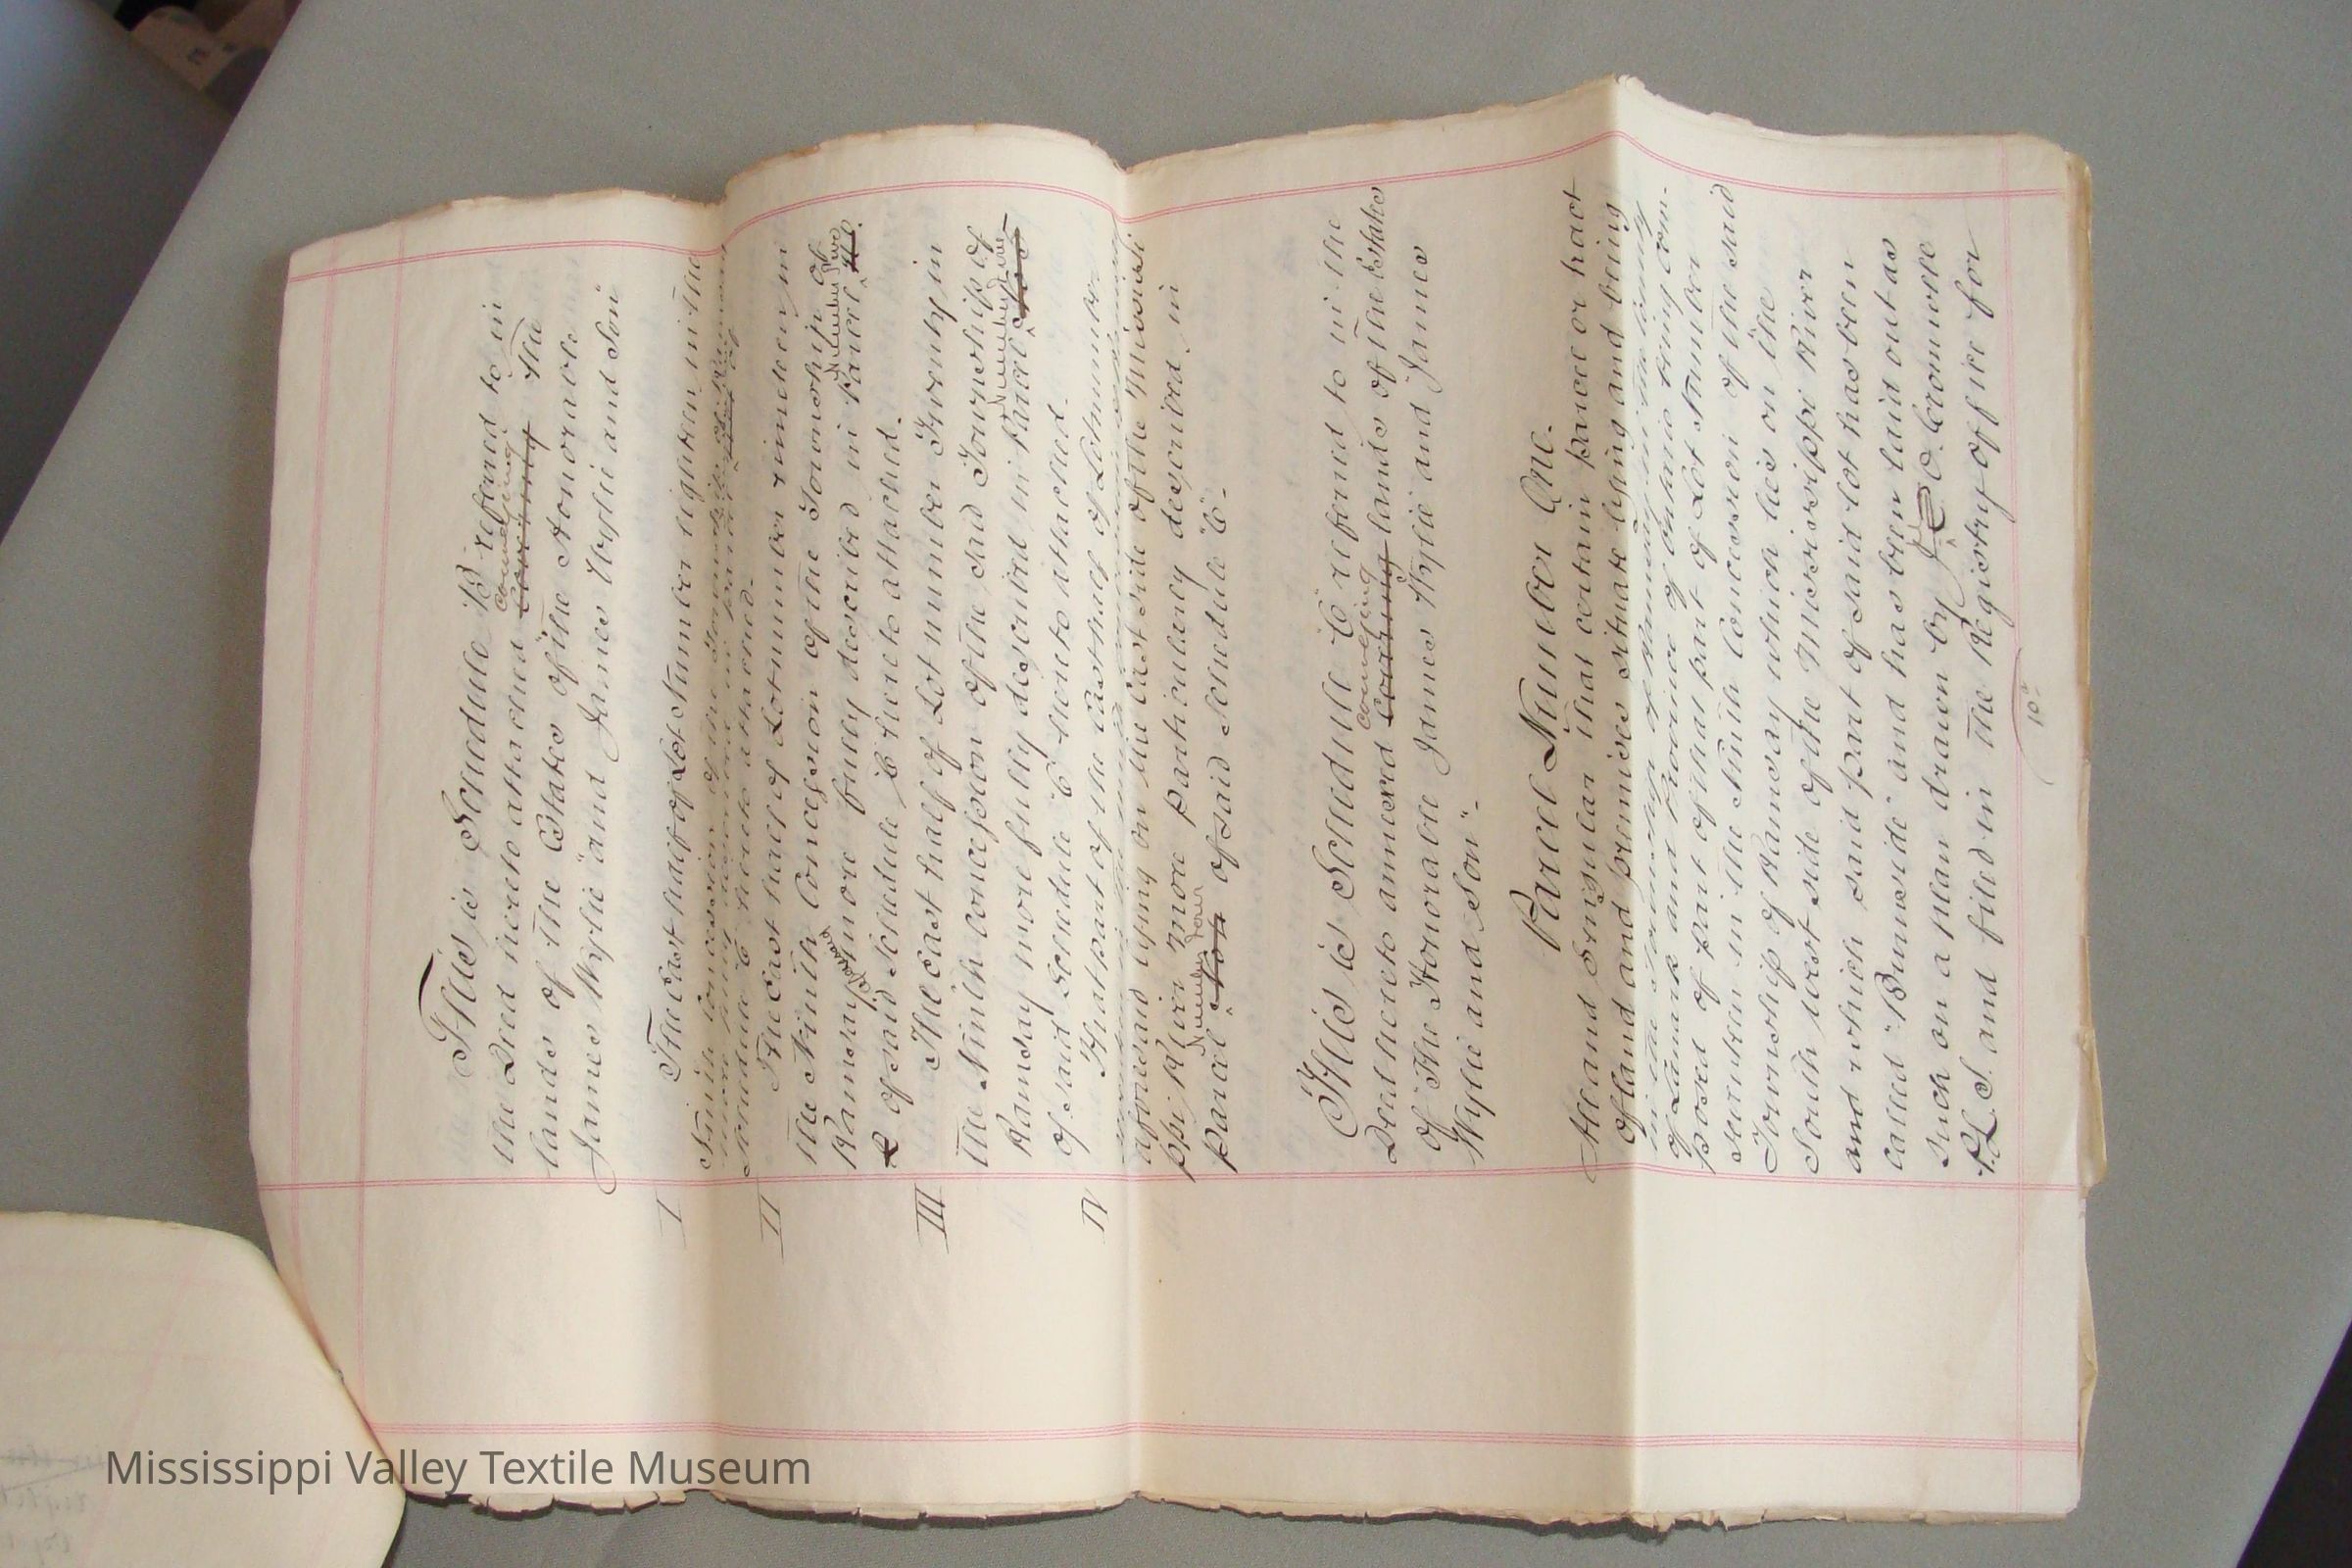 This is Schedule "B" referred to in
the Deed hereto attached covering conveying the
lands of the Estates of the Honorable
James Wylie "and James Wylie and Son"
I The East half of Lot Number eighteen in the
Ninth Concession of the Township of Ramsay
more fully described in Parcel of
Schedule C hereto attached.
II The East half of Lot number nineteen in
the Ninth Concession of the Township of
Ramsay more fully described in Parcel Number Two
of said Schedule C hereto attached.
III The East half of Lot number Twenty in
the Ninth Concession of the said Township of
Ramsay more fully described in Parcel Number
of said Schedule C hereto attached.
IV That part of the East half of Lot number
aforesaid lying on the East side of the Mississi-
ppi River more particularly described in
Parcel Number Four of said Schedule "C".
This is Schedule "C" referred to in the
Deed hereto annexed covering conveying lands of the Estate
of the Honorable James Wylie and "James
Wylie and Son".
Parcel Number One.
All and Singular that certain parcel or tract
of land and premises situate lying and being
in the Township of Ramsay in the County
of Lanark and Province of Ontario being com-
posed of part of that part of Lot Number
seventeen in the Ninth Concession of the said
Township of Ramsay which lies on the
South west side of the Mississippi River
and which said part of said Lot has been
called "Burnside" and has been laid out as
such on a plan drawn by J. O. Cromwell
P.L.S. and filed in the Registry office for
10
Mississippi Valley Textile Museum